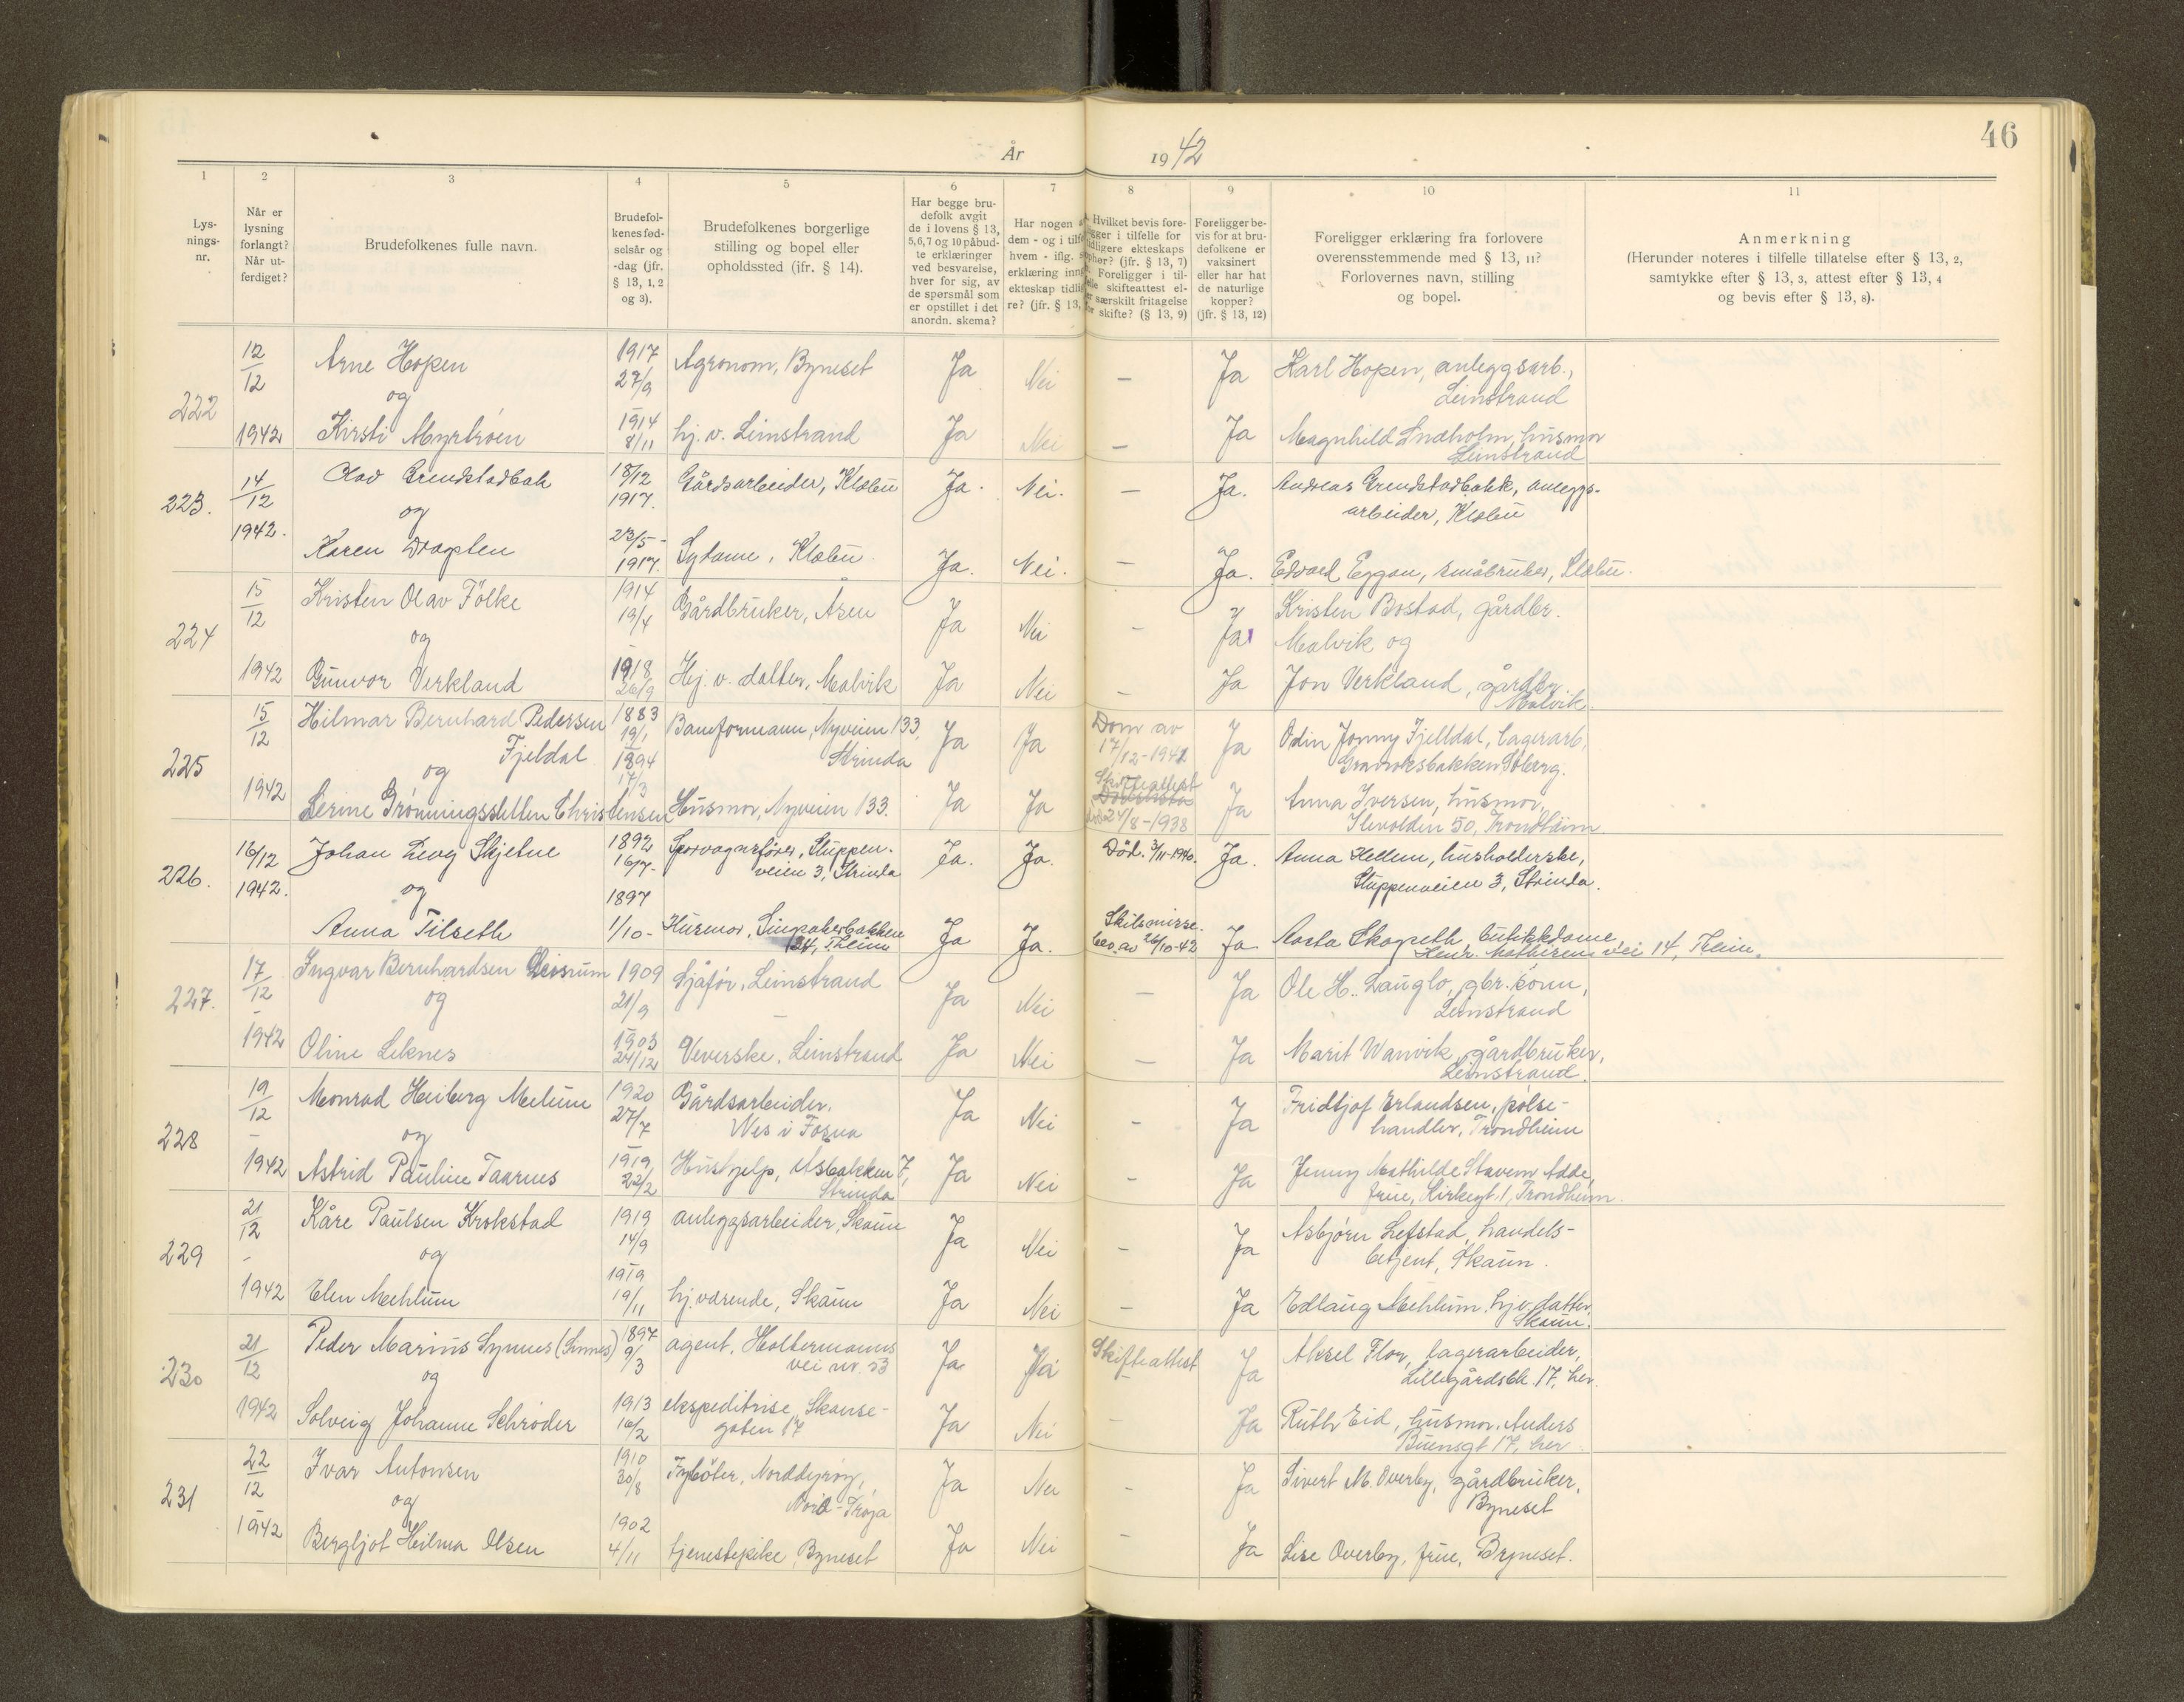 46
År 1942
1 2 3 4 5 6 7 8 9 10 11
Lys-
nings-
nr.
Når er
lysning
forlangt?
Når ut-
ferdiget?
Brudefolkenes fulle navn.
Brudefol-
kenes fød-
selsår og
-dag (jfr.
§ 13, 1, 2
og 3).
Brudefolkenes borgerlige
stilling og bopel eller
opholdssted (jfr. § 14).
Har begge bru-
defolk avgit
de i lovens § 13,
5, 6, 7 og 10 påbud-
te erklæringer
ved besvarelse,
hver for sig, av
de spørsmål som
er opstillet i det
anordn. skema?
Har nogen
dem - og i tilfe
hvem - iflg.
erklæring inng
ekteskap tidli
re? (jfr. § 13,
Hvilket bevis fore-
ligger i tilfelle for
tidligere ekteskaps
ophør? (jfr. § 13, 7)
Foreligger i til-
felle skifteattest el-
er særskilt fritagelse
for skifte? (§ 13, 9)
Foreligger be-
vis for at bru-
defolkene er
vaksinert
eller har hat
de naturlige
kopper?
(jfr. § 13, 12)
Foreligger erklæring fra forlovere
overensstemmende med § 13, 11?
Forlovernes navn, stilling
og bopel.
Anmerkning
(Herunder noteres i tilfelle tillatelse efter § 13, 2,
samtykke efter § 13, 3, attest efter § 13, 4
og bevis efter § 13, 8).
222 12/12 1942 Arne Hopen 1917 27/9 Agronom, Byneset Ja Nei — Ja Karl Hopen, anleggsarb.,
Leinstrand
og
Kirsti Myrtrøen 1914 8/11 hj. v. Leinstrand Ja Nei — Ja Magnhild Lndholm, husmor
Leinstrand
223. 14/12 1942. Olav Grendstadbak 18/12 1917. Gårdsarbeider, Klæbu Ja. Nei. — Ja. Andreas Grendstadbakk, anleggs-
arbeider, Klæbu
og
Karen Dragsten 23/5- 1917. Sydame, Klæbu. Ja. Nei. — Ja. Edvard Eggan, småbruker, Klæbu.
224 15/12 1942 Kristen Olav Følke 1914 19/4 Gårdbruker, Åsen Ja Nei - Ja Kristen Bostad, gårdbr.
Malvik og
og
Gunvor Verkland 1918 26/9 Hj. v. datter, Malvik Ja Nei - Ja Jon Verkland, gårdbr.
Malvik.
225 15/12 1942 Hilmar Bernhard Pedersen
Fjeldal 1883 19/1 Baneformann, Nyveien 133,
Strinda Ja Ja Dom av
17/12-1941 Ja Odin Jonny Fjelldal, lagerarb,
Gramoksbakken, Søberg.
og
Serine Grønningssletten Christensen 1894 17/3 Husmor, Nyveien 133. Ja Ja Skifteattest
24/8-1938 Ja Anna Iversen, husmor,
Ilevolden 50, Trondheim
226. 16/12 1942. Johan Levg Skjetne 1892 16/7- Sporvognsfører, Stuppen-
veien 3, Strinda Ja. Ja. Død. 3/11-1940. Ja. Anna Hellem, husholderske,
Stuppenveien 3, Strinda.
og
Anna Tilseth 1897 1/10- Husmor, Singsakerbakken
24, Tr.heim Ja Ja. Skilsmisse
bev. av 26/10-42 Ja Aasta Skogseth, butikkdame,
Henr. Mathisens vei 14, Tr.heim.
227. 17/12 - 1942 Ingvar Bernhardsen Leisrum 1909 21/9 Sjåfør, Leinstrand Ja Nei — Ja Ole H. Lauglo, gbr. sønn,
Leinstrand
og
Oline Leknes 1903 24/12 Veverske, Leinstrand Ja Nei — Ja Marit Wanvik, gårdbruker,
Leinstrand.
228 19/12 - 1942 Monrad Heiberg Melum 1920 27/7 Gårdsarbeider,
Nes i Fosna Ja Nei - Ja Fridtjof Erlandsen, pølse-
handler, Trondheim
og
Astrid Pauline Taarnes 1919 22/2 Hushjelp, Åsbakken 7,
Strinda Ja Nei - Ja Jenny Mathilde Stavem Adde,
frue, Kirkegt. 1, Trondheim.
229 21/12 - 1942 Kåre Paulsen Krokstad 1919 14/9 anleggsarbeider, Skaun Ja Nei - Ja Asbjørn Lefstad, handels-
betjent, Skaun.
og
Elen Mehlum 1919 19/11 hj. værende, Skaun Ja Nei - Ja Edlaug Mehlum, hjv. datter,
Skaun.
230 21/12 1942 Peder Marius Synnes (Sinnes) 1897 9/3 agent, Holtermanns
vei nr. 53 Ja Ja Skifteattest
- Ja Aksel Flor, lagerarbeider,
Lillegårdsbk. 17, her.
og
Solveig Johanne Schrøder 1913 16/2 ekspeditrise, Skanse-
gaten 17 Ja Nei - Ja Ruth Eid, husmor, Anders
Buensgt 17, her.
231 22/12 - 1942 Ivar Antonsen 1910 30/8 Fyrbøter, Norddyrøy,
Nord-Frøya Ja Nei - Ja Sivert M. Overby, gårdbruker,
Byneset
og
Bergljot Helma Olsen 1902 4/11 tjenestepike, Byneset Ja Nei - Ja Lise Overby, frue, Byneset.